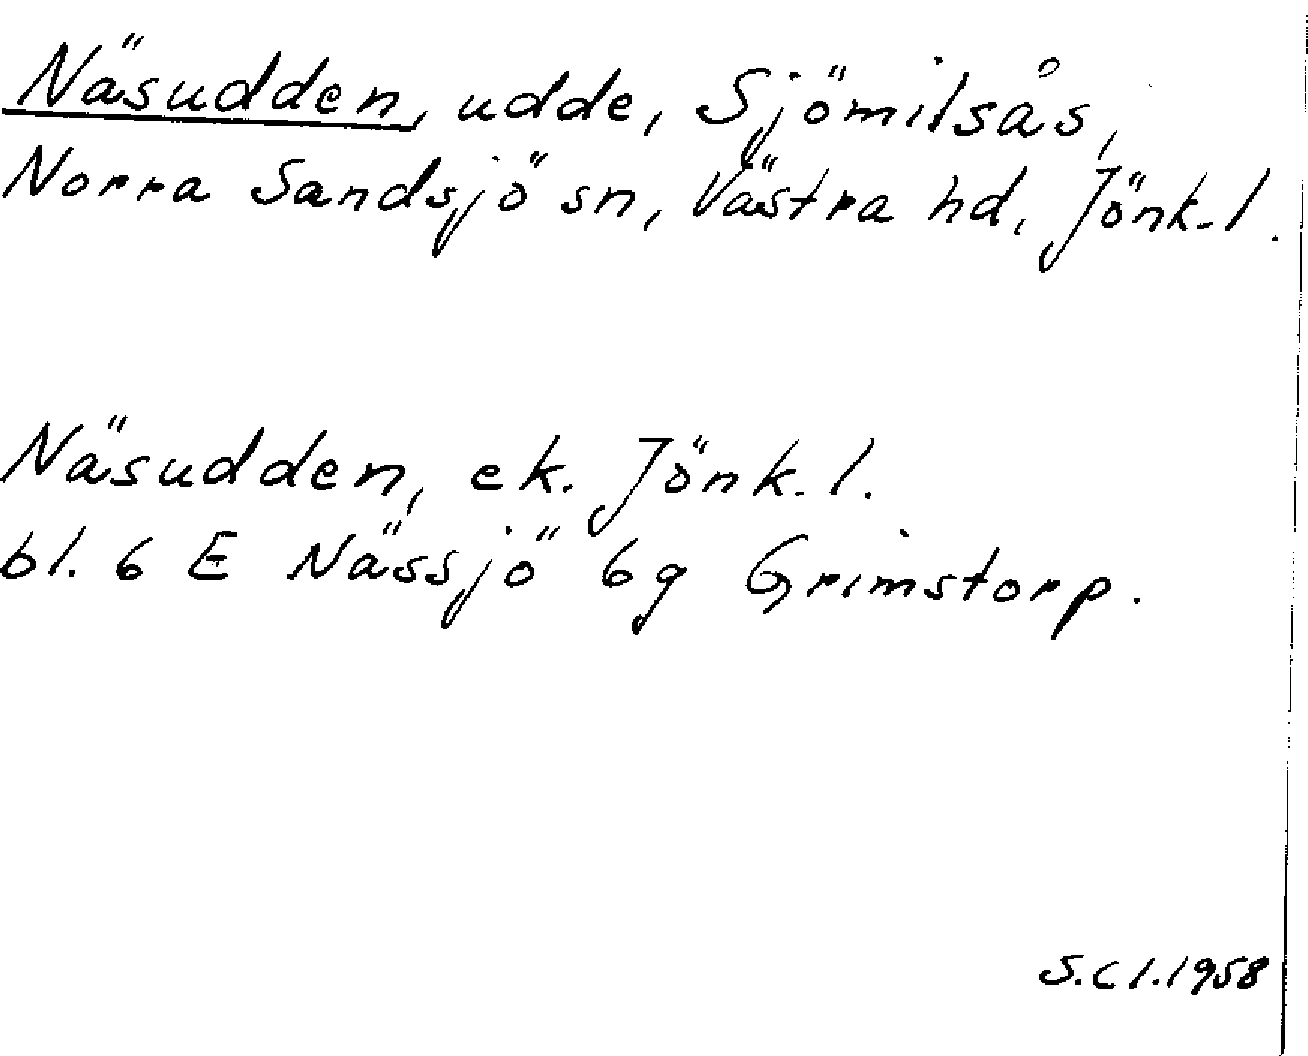 Näsudden, udde, Sjömilsås,
Norra Sandsjö sn, Västra hd, Jönk. l.
Näsudden, ek. Jönk. l.
bl. 6 E Nässjö 6g Grimstorp.
S.C l. 1958